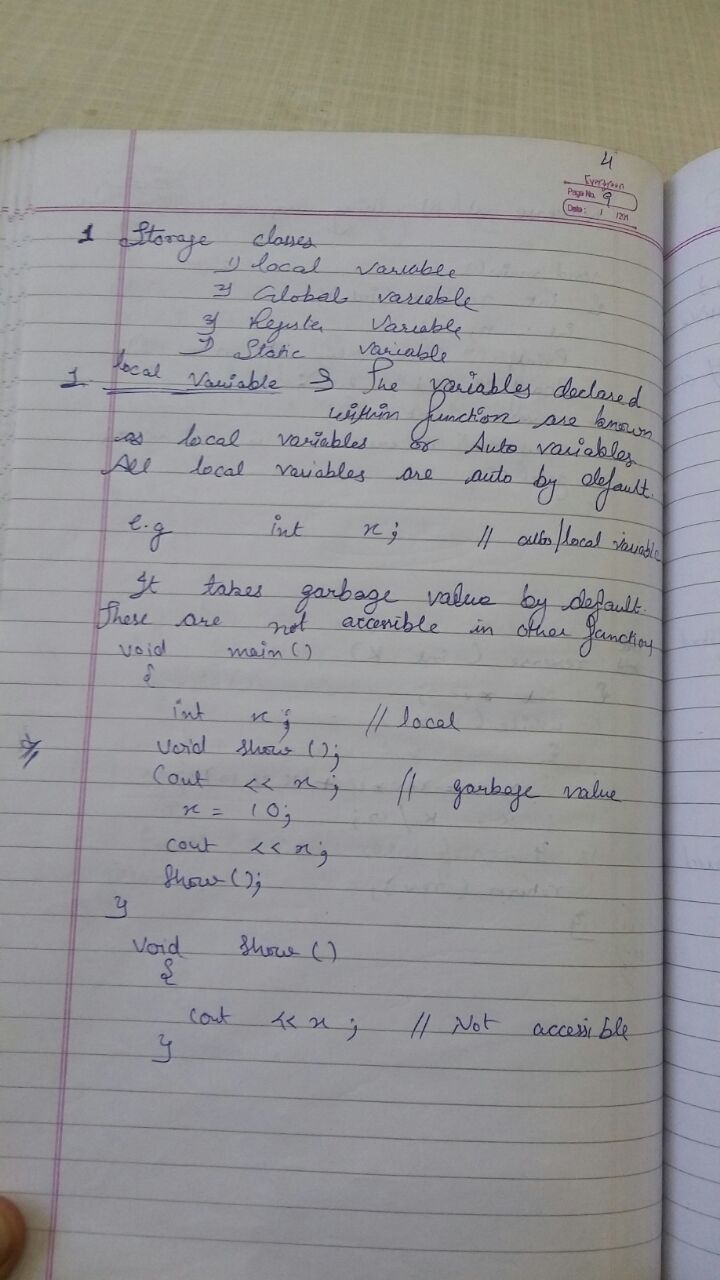 4
Evergreen
Page No. 9
Date: / /201
1 Storage classes
1) local variable
2) Global variable
3) Register Variable
4) Static variable
1 local Variable → The variables declared
within function are known
as local variables or Auto variables
All local variables are auto by default.
e.g int x; // auto/local variable
It takes garbage value by default.
These are not accessible in other function
void main()
{
int x; // local
void show ();
Cout << x; // garbage value
x = 10;
cout << x;
Show ();
}
void show ()
{
Cout << x; // Not accessible
}